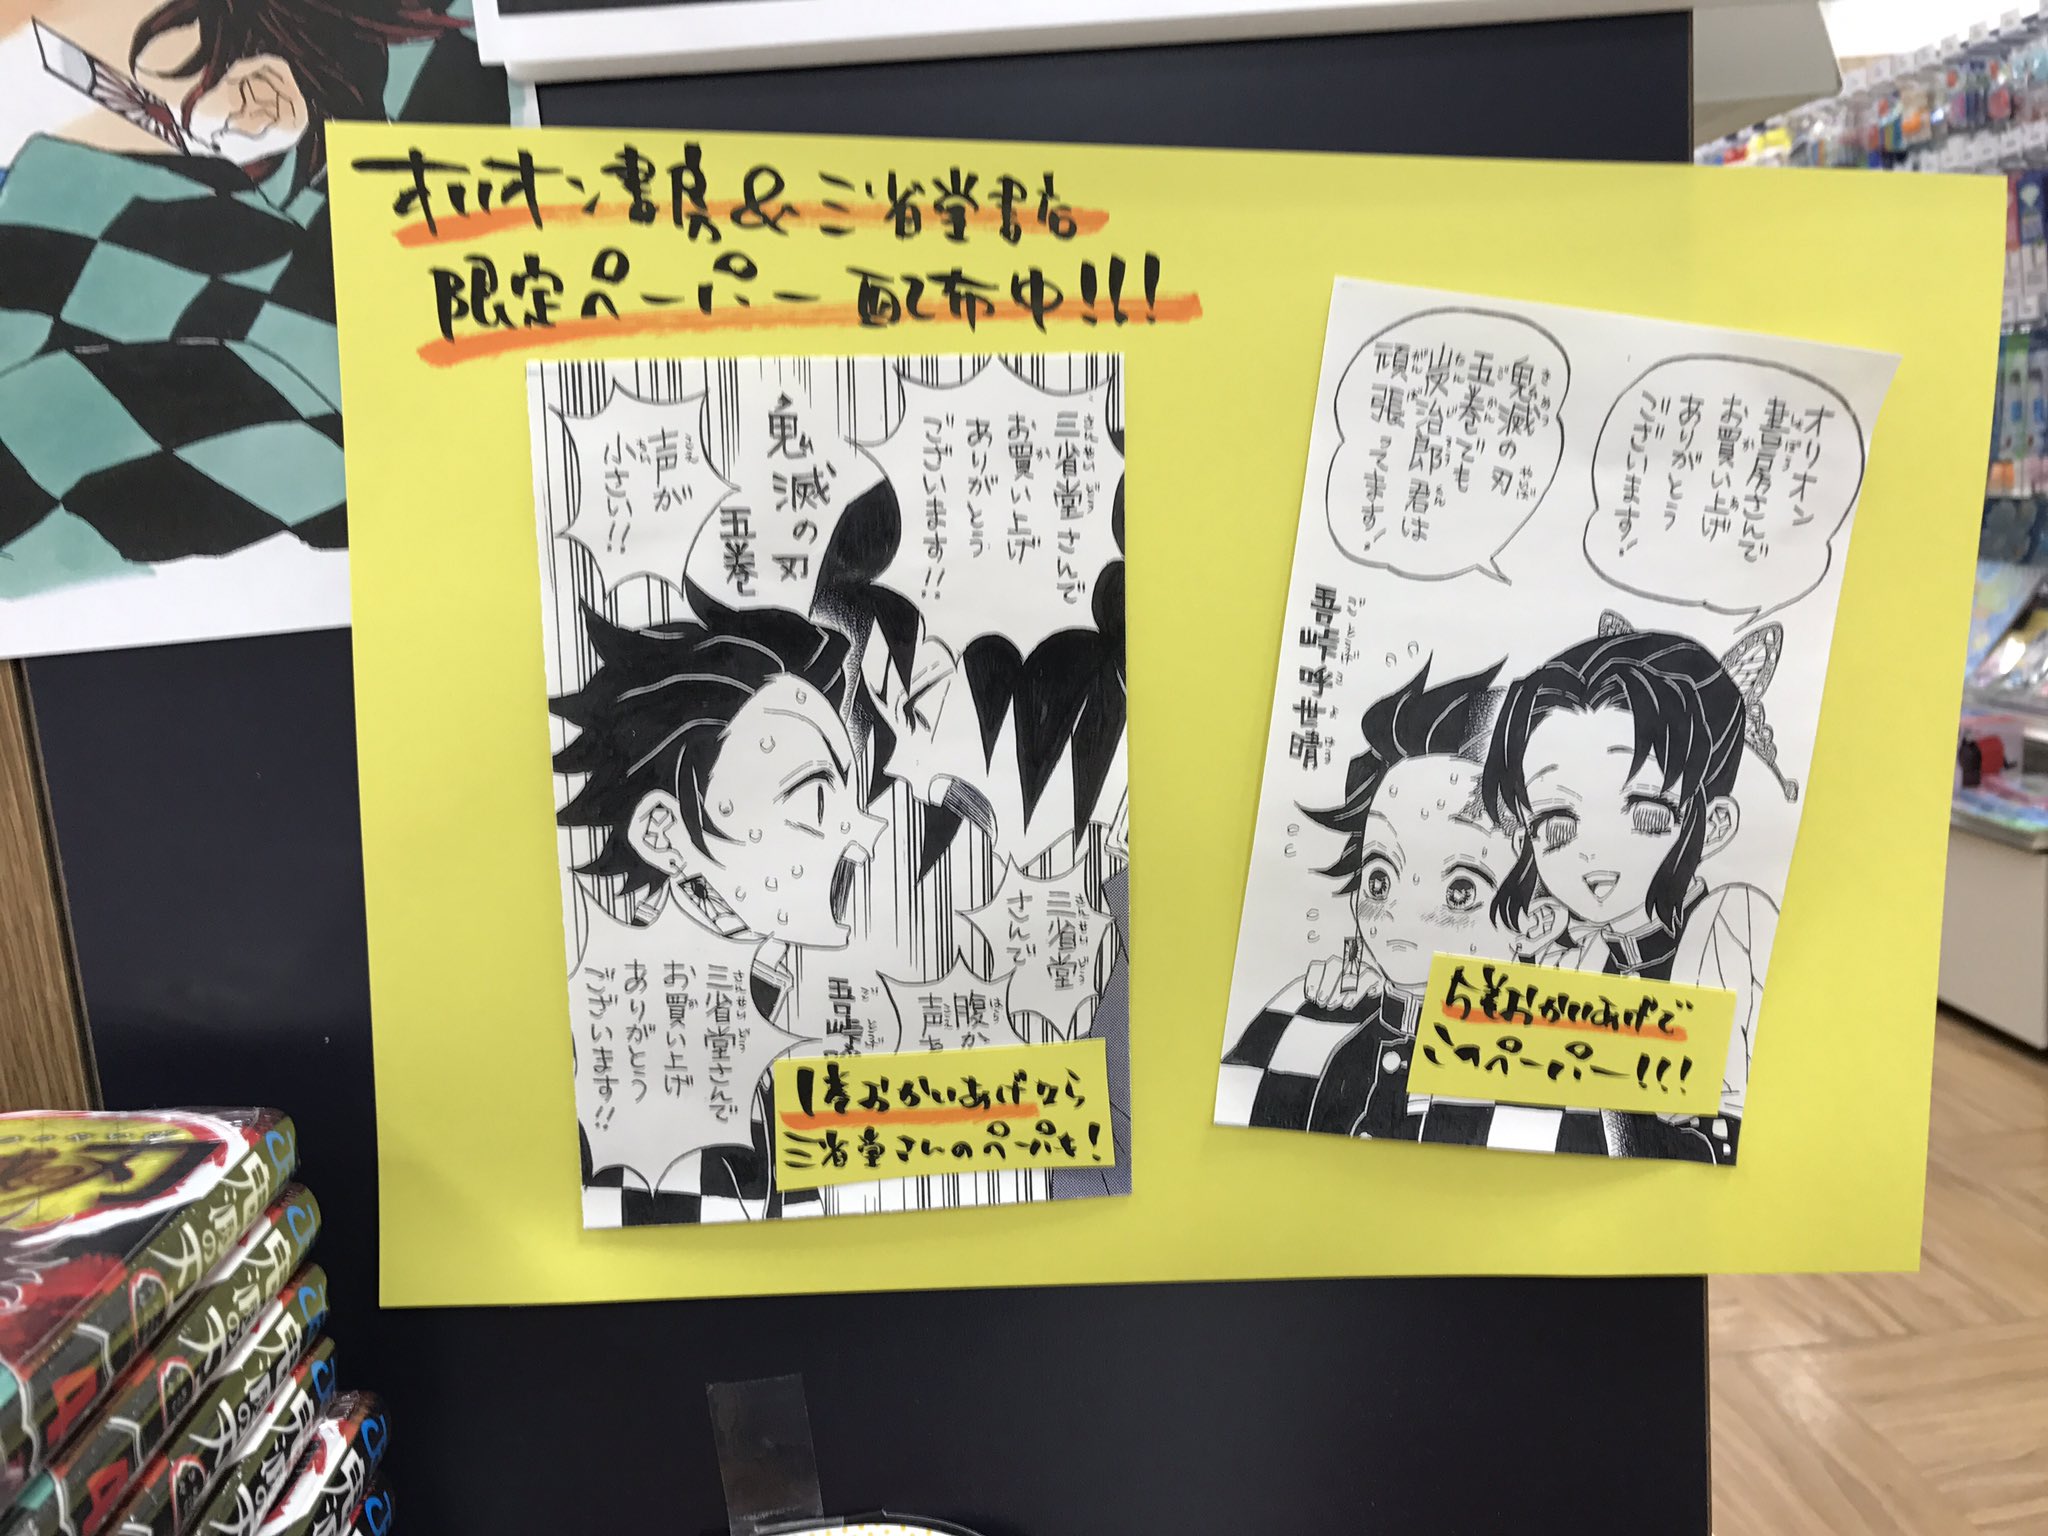 オリオン書房&三省堂書店
限定ペーパー配布中!!!
三省堂さんで
お買い上げ
ありがとう
ございます!!
鬼滅の刃
五巻
声が
小さい!!
三省堂
さんで
腹か
声を
三省堂さんで
お買い上げ
ありがとう
ございます!!
吾峠
1巻おかいあげなら
三省堂さんのペーパーも!
オリオン
書房さんで
お買い上げ
ありがとう
ございます!
鬼滅の刃
五巻でも
炭治郎君は
頑張ってます!
吾峠呼世晴
5巻おかいあげで
このペーパー!!!
鬼滅の刃
4
鬼滅の刃
4
鬼滅の刃
4